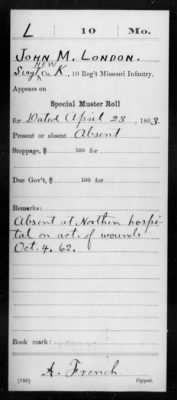 L 10 Mo.
John M. London.
NEW
Sergt Co. K, 10 Reg't Missouri Infantry.
Appears on
Special Muster Roll
for Dated April 23, 1863.
Present or absent Absent
Stoppage, $ 100 for
Due Gov't, $ 100 for
Remarks:
Absent at Northern hospi-
tal on act. of wounds
Oct. 4. 62.
Book mark:
A. French
Copyist.